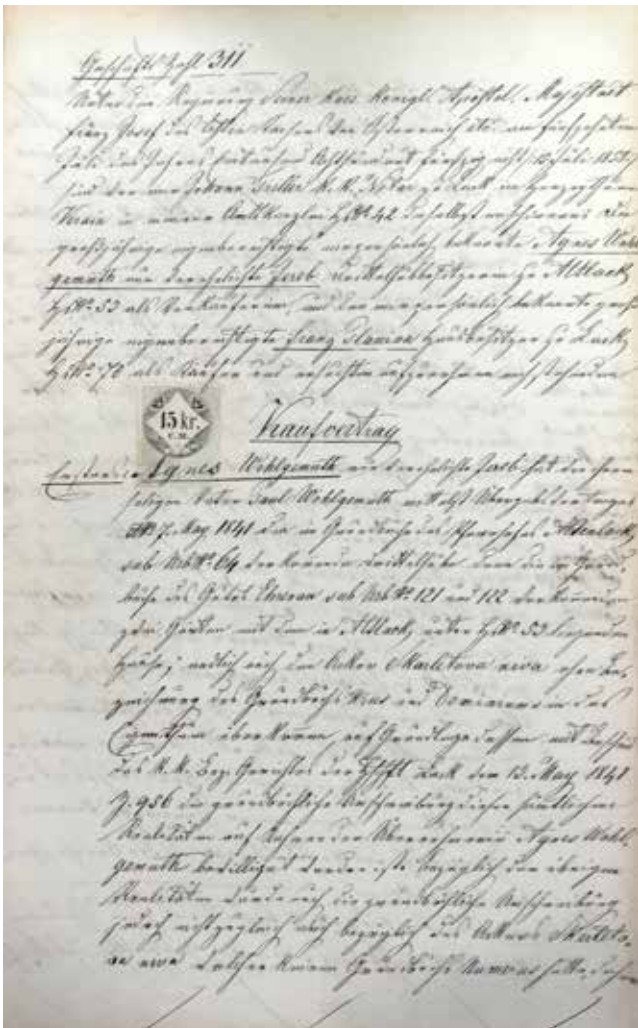 Geschäfts Zahl 311
Unter der Regierung Seiner kais. königl. Apostol. Majestät
Franz Josef des Ersten Kaisers von Österreich etc. am fünfzehnten
Juli des Jahres Achthundert fünfzig acht 15 Juli 1858
sind vor mir Triller k. k. Notar zu Lack im Herzogthume
Krain in meiner Amtskanzlei Hs N° 42 daselbst erschienen: die
großjährige eigenberechtigte mir persönlich bekannte Agnes Wohl
gemuth nun verehelichte Jereb Drittelhubbesitzerin zu Altlack
Hs N° 53 als Verkäuferin, und der mir persönlich bekannte groß
jährige eigenberechtigte Franz Hausbesitzer zu Lack
Hs N° 70 als Käufer und ersuchten aufzunehmen nachstehenden
15 kr.
C. M.
Kaufvertrag
Erstens: Agnes Wohlgemuth nun verehelichte Jereb hat von ihrem
seligen Vater Paul Wohlgemuth mittelst Übergabsvertrages
7. May 1841 die im Grundbuche des Pfarrhofes Altenlack
sub Urb N° 64 vorkommende Drittelhube, dann die im Grund
buche des Gutes Ehrenau sub Urb N° 121 und 122 vorkommen
den mit dem in Altlack unter Hs N° 53 liegenden
Hause; endlich auch den Acker Skarlitova niva ohne Be
zeichnung des Grundbuchs und in das
Eigenthum überkommen, auf Grundlage dessen mit Bescheid
des k. k. Bez. Gerichtes der Hschft Lack vom 13. May 1841
Z. 956 die grundbüchliche Umschreibung dieser sämmtlichen
Realitäten auf Namen der Übernehmerin Agnes Wohl
gemuth bewilliget worden ist. bezüglich der übrigen
Realitäten wurde auch die grundbüchliche Umschreibung
jedoch nicht zugleich auch bezüglich des Ackers Skarlito
va niva welcher keinen Grundbuchs hatte,